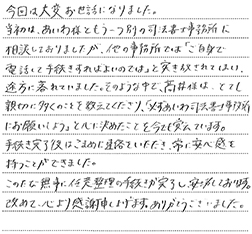 今回は大変お世話になりました。
当初は、あいわ様ともう一つ別の司法書士事務所に
相談しておりましたが、他の事務所では"ご自身で
電話して手続きすればよいのでは"と突き放されてしまい、
途方に暮れていました。そのような中で、髙井様は、とても
親切に多くのことを教えてくださり、"ぜひあいわ司法書士事務所
にお願いしよう"と心に決めたことを今でも覚えています。
手続き完了後はこまめに連絡をいただき、常に安心感を
持つことができました。
このたび無事に任意整理の手続きが完了し、安堵しております。
改めて、心より感謝申し上げます。ありがとうございました。